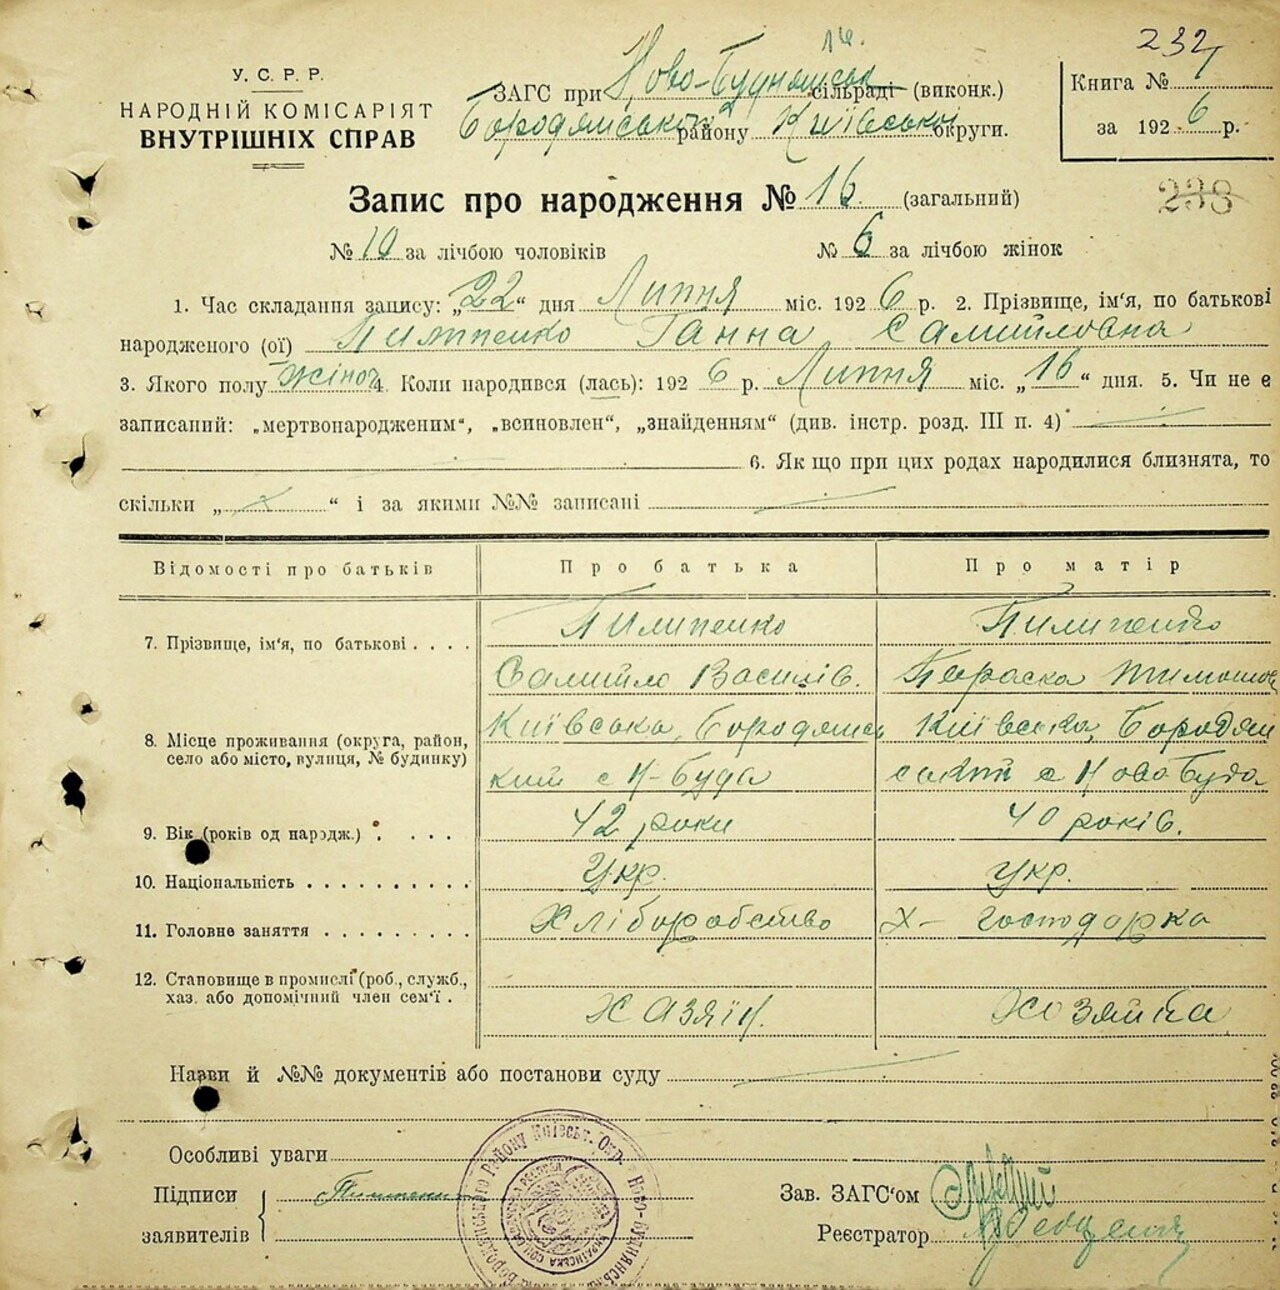 232
У. С. Р. Р.
НАРОДНІЙ КОМІСАРІЯТ
ВНУТРІШНІХ СПРАВ
ЗАГС при Ново-Буднянській сільраді (виконк.)
Бородянського району Київської округи.
Книга №
за 1926 р.
238
Запис про народження № 16 (загальний)
№ 10 за лічбою чоловіків № 6 за лічбою жінок
1. Час складання запису: „22“ дня Липня міс. 1926 р. 2. Прізвище, ім'я, по батькові
народженого (ої) Пилипенко Ганна Самийловна
3. Якого полу жіноч 4. Коли народився (лась): 1926 р. Липня міс. „16“ дня. 5. Чи не є
записаний: „мертвонародженим“, „всиновлен“, „знайденням“ (див. інстр. розд. III п. 4)
6. Як що при цих родах народилися близнята, то
скільки „ х “ і за якими №№ записані
Відомості про батьків Про батька Про матір
7. Прізвище, ім'я, по батькові . . . . Пилипенко Пилипенко
Самийло Василів. Параска Тимошов
8. Місце проживання (округа, район, Київська, Бородянсь Київська, Бородян
село або місто, вулиця, № будинку) кий с Н-Буда ський с Ново Буда
9. Вік (років од народж.) . . . . 42 роки 40 років.
10. Національність . . . . . . . . . . Укр. Укр.
11. Головне заняття . . . . . . . . . Хліборобство Х- господарка
12. Становище в промислі (роб., служб.,
хаз. або допомічний член сем'ї . Хазяїн. Хозяйка
Назви й №№ документів або постанови суду
Особливі уваги
Підписи Пилипенко
заявителів
Зав. ЗАГС'ом
Реєстратор
Бородянського району Київськ. Окр. Ново-буднянськ